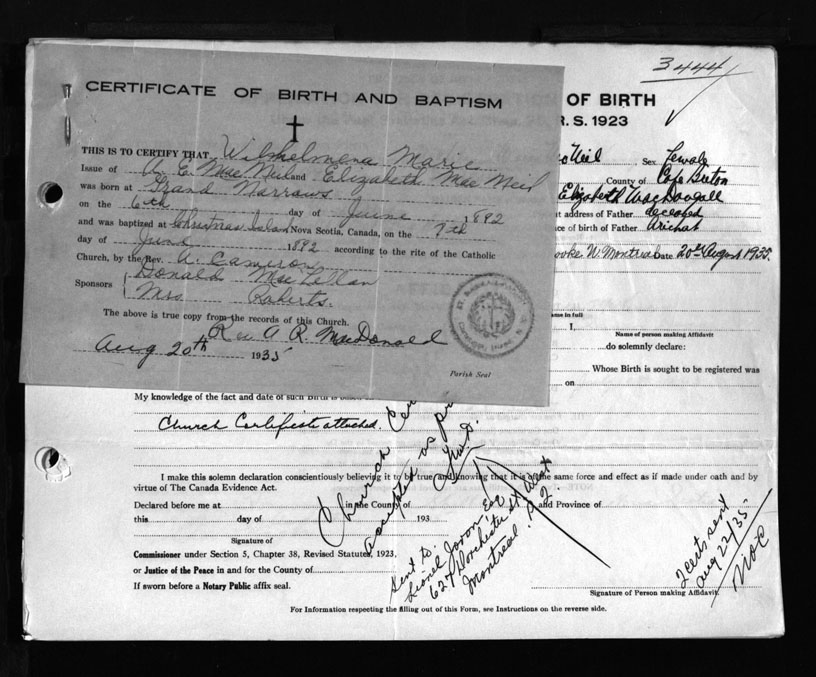 3444
CERTIFICATE OF BIRTH AND BAPTISM
THIS IS TO CERTIFY THAT Wilhelmena Marie
Issue of A. E. Mac Neil and Elizabeth Mac Neil
was born at Grand Narrows
on the 6th day of June 1882
and was baptized at Christmas Island Nova Scotia, Canada, on the 8th
day of June 1882 according to the rite of the Catholic
Church, by the Rev. A. Cameron
Sponsors { Donald MacLellan
Mrs Roberts.
The above is true copy from the records of this Church.
Rev A R. MacDonald
Aug 20th 1935
Parish Seal
OF BIRTH
R. S. 1923
Neil Sex Female
County of Cape Breton
Elizabeth MacDougall
address of Father deceased
ce of birth of Father Arichat
W. Montreal Date 20th August 1935.
me in full
I,
Name of person making Affidavit
do solemnly declare:
Whose Birth is sought to be registered was
on
My knowledge of the fact and date of such Birth is based
Church Certificate attached.
I make this solemn declaration conscientiously believing it to be true and knowing that it is of the same force and effect as if made under oath and by
virtue of The Canada Evidence Act.
Declared before me at in the County of and Province of
this day of 193
Signature of
Commissioner under Section 5, Chapter 38, Revised Statutes, 1923,
or Justice of the Peace in and for the County of
If sworn before a Notary Public affix seal.
Signature of Person making Affidavit.
For Information respecting the filling out of this Form, see Instructions on the reverse side.
Church Cer
accepted as pr
Sent to
Lionel Joron, Esq
627 Dorchester St West
Montreal P.Q.
2 certs sent
Aug 22/35